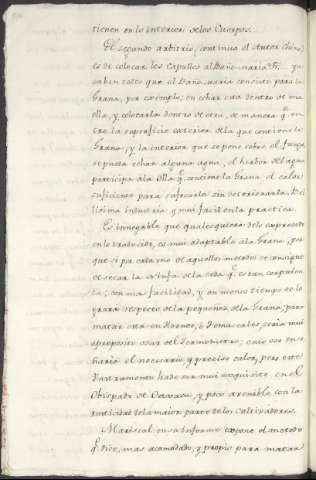 tienen en lo interior de los Cuerpos.
El segundo arbitrio, continua el Autor Chino,
es de colocar los Capullos al Baño-maria
saben todos que el Baño maria consiste para la
Grana, por exemplo, en echar esta dentro de una
olla, y colocarla dentro de otra, de manera q.e en-
tre la superficie exterior de la que contiene la
Grana, y la interior que se pone sobre el fuego
se pueda echar alguna agua, el hervor del agua
participa a la olla q.e contiene la Grana el calor
suficiente para sufocarla sin deteriorarla.
industria y mui facil en la practica.
Es innegable que qualesquiera de lo expresado
en lo traducido, es mui adaptable a la Grana, por-
que si por alguno de aquellos metodos se consigue
de secar la Ninfa de la seda q.e es tan corpulen-
ta, con una facilidad, y en menos tiempo se lo-
grará respecto de la pequeñez de la Grana; para
matar esta en Hornos, ó Tema-cales, seria mui
aproposito usar del Termometro; este nos en-
señaria el necesario, y preciso calor, pero este
Ynstrumento hade ser mui exquisito en el
Obispado de Oaxaca, y poco accesible con la
rusticidad de la maior parte de los Cultivadores.
Mariscal en su Informe expone el metodo
q.e dice, mas acomodado, y propio para matar